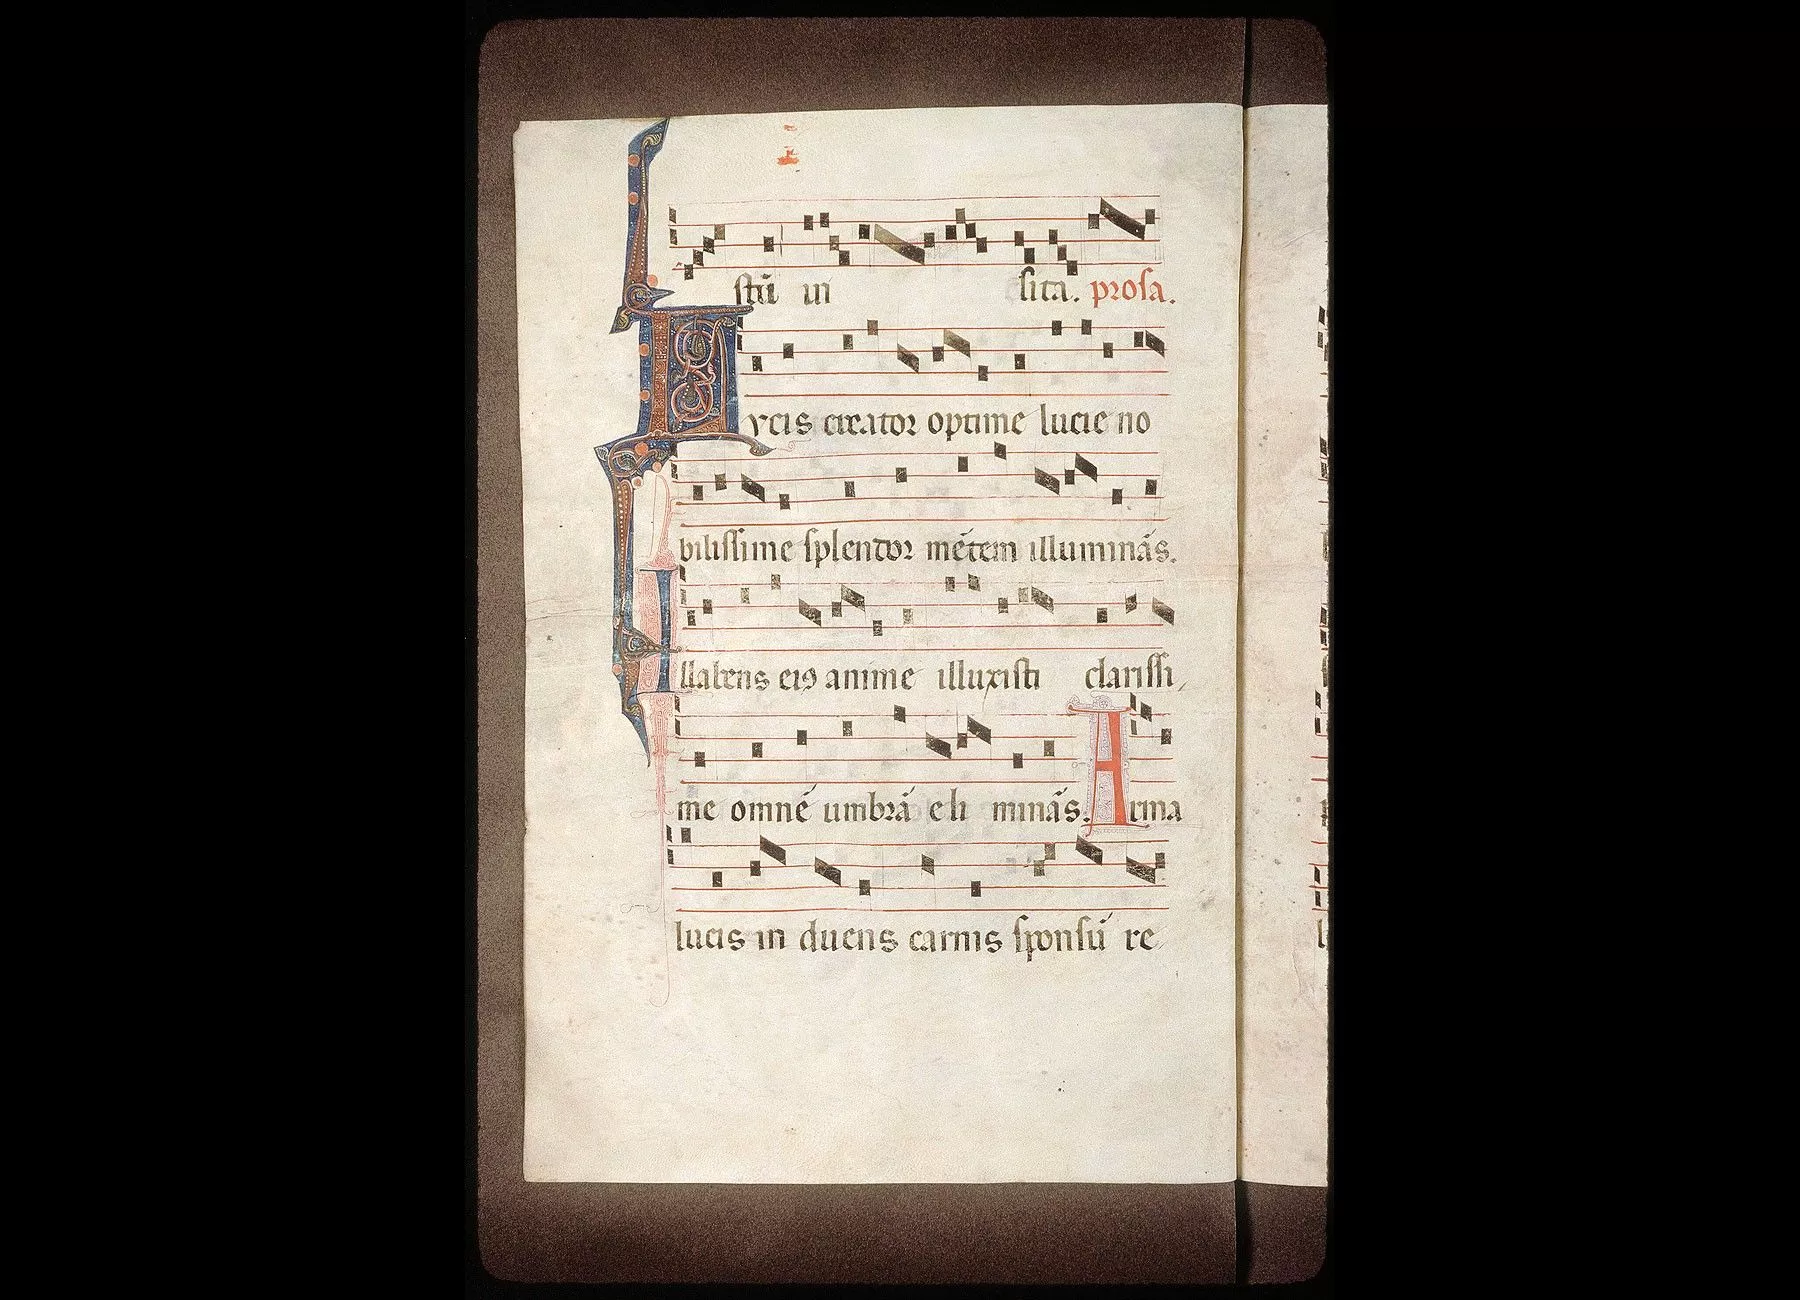 stū in sita. prosa.
Lycis creator optime lucie no
bilissime splendor mētem illuminās.
Illabens eiꝯ anime illuxisti clarissi
me omnē umbrā eli minās. Arma
lucis in duens carnis sponsū re